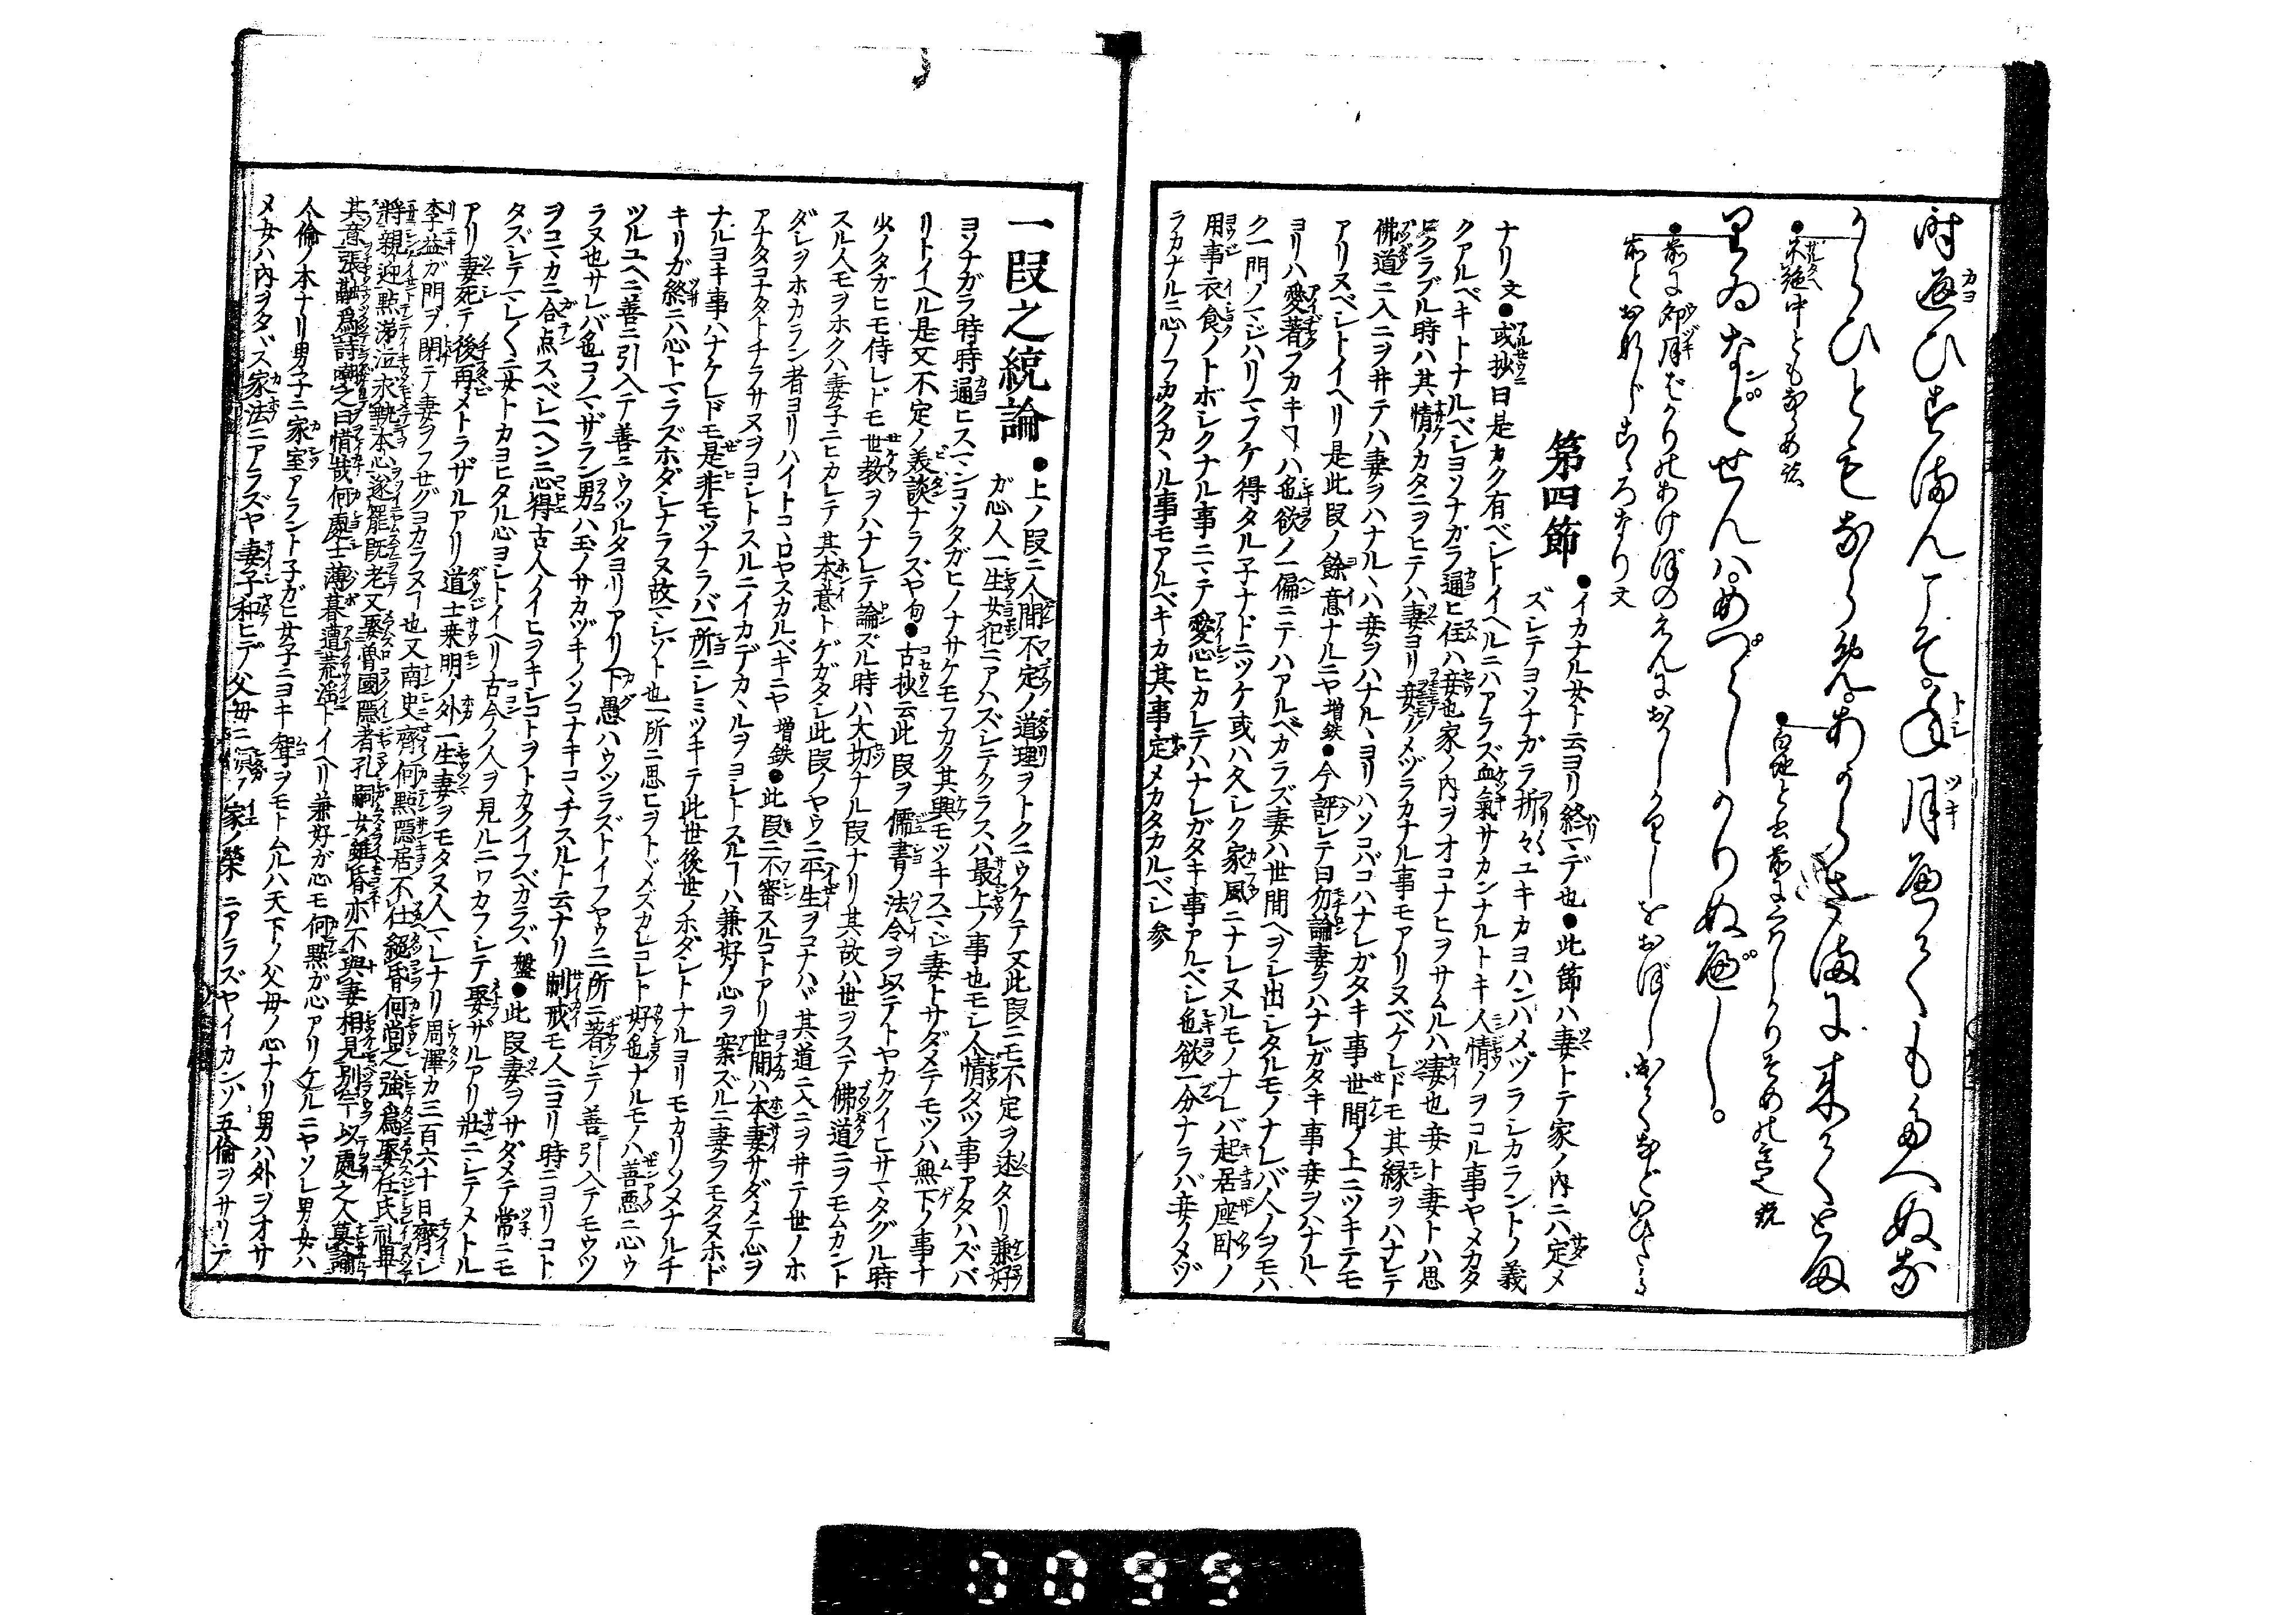 時通ひすまんこそ。年月へても。たえぬな
からひともならめ。あからさまに来て。とま
りゐなどせんは。めづらしかりぬべし。
第四節
●イカナル女ト云ヨリ終マデ也●此節ハ妻トテ家ノ内ニハ定メ
ズシテヨソナガラ折々ユキカヨハンハメヅラシカラントノ義
ナリ文●或抄曰是カク有ベシトイヘルニハアラズ血氣サカンナルトキ人情ノヲコル事ヤメカタ
クアルベキトナルベシヨソナガラ通ヒ住ハ妾也家ノ内ヲオコナヒヲサムルハ妻也妾ト妻トハ思
ヒクラブル時ハ其情ノカタニヲヒテハ妻ヨリ妾ノメヅラカナル事モアリヌベケレドモ其縁ヲハナレテ
佛道ニ入ニヲヰテハ妻ヲハナルヽハ妾ヲハナルヽヨリハソコバコハナレガタキ事世間ノ上ニツキテモ
アリヌベシトイヘリ是此段ノ餘意ナルニヤ増鉄●今評シテ曰勿論妻ヲハナレガタキ事妾ヲハナルヽ
ヨリハ愛著フカキヿハ色欲ノ一偏ニテハアルベカラズ妻ハ世間ヘヲシ出シタルモノナレバ人ノヲモハ
ク一門ノマジハリマフケ得タル子ナドニツケ或ハ久シク家風ニナレヌルモノナレバ起居座臥ノ
用事衣食ノトボシクナル事ニマテ愛心ヒカレテハナレガタキ事アルベシ色欲一分ナラバ妾ノメヅ
ラカナルニ心ノフカクカヽル事モアルベキカ其事定メカタカルベシ参
一段之統論
●上ノ段ニ人間不定ノ道理ヲトクニウケテ又此段ニモ不定ヲ述タリ兼好
ガ心人一生女犯ニアハズシテクラスハ最上ノ事也モシ人情タツ事アタハズバ
ヨソナガラ時時通ヒスマンコソタガヒノナサケモフカク其興モツキスマジ妻トサダメテモツハ無下ノ事ナ
リトイヘル是又不定ノ義談ナラズや句●古抄云此段ヲ儒書ノ法令ヲ以テトヤカクイヒサマタグル時
少ノタガヒモ侍レドモ世教ヲハナレテ論ズル時ハ大切ナル段ナリ其故ハ世ヲステ佛道ニヲモムカント
スル人モヲホクハ妻子ニヒカレテ其本意トゲガタシ此段ノヤウニ平生ヲコナハヾ其道ニ入ニヲヰテ世ノホ
ダシヲホカラン者ヨリハイトコヽロヤスカルベキニヤ増鉄●此段ニ不審スルコトアリ世間ハ本妻サダメテ心ヲ
アナタコナタトチラサヌヲヨシトスルニイカデカヽルヲヨシトスルヿハ兼好ノ心ヲ案ズルニ妻ヲモタヌホド
ナルヨキ事ハナケレドモ是非モツナラバ一所ニシミツキテ此世後世ノホダシトナルヨリモカリソメナルチ
キリガ終ニハ心トマラズホダシナラヌ故マシゾト也一所ニ思ヒヲトヾメズカレコレト好色ナルモノハ善悪ニ心ウ
ツルユヘニ善ニ引入テ善ニウツルタヨリアリ下愚ハウツラズトイフヤウニ一所ニ著シテ善ニ引入テモウツ
ラヌ也サレバ色コノマザラン男ハ玉ノサカヅキノソコナキコヽチスルト云ナリ制戒モ人ニヨリ時ニヨリコト
ヲコマカニ合点スベシヘンニ心得古人ノイヒヲキシコトヲトカクイフベカラズ盤●此段妻ヲサダメテ常ニモ
タズシテマシクニ女トカヨヒタル心ヨシトイヘリ古今ノ人ヲ見ルニワカフシテ娶サルアリ壯ニシテメトル
アリ妻死テ後再メトラザルアリ道士来明ノ外一生妻ヲモタヌ人マレナリ周澤カ三百六十日齊シ
李益ガ門ヲ閉テ妻ヲフサグヨカラヌヿ也又南史齊何點隱居不仕絕昏何尚之強為娶任氏
將親迎點涕泣求執本心遂罷既老又娶魯國隱者孔嗣女雖昏亦不與妻相見別室以處之人莫諭
其意張融為詩嘲之曰惜哉何處士薄暮遭荒淫トイヘリ兼好が心モ何點が心アリケルニヤソレ男女ハ
人倫ノ本ナリ男子ニ家室アラント子ガヒ女子ニヨキ聟ヲモトムルハ天下ノ父母ノ心ナリ男ハ外ヲオサ
メ女ハ内ヲタヾス家法ニアラズヤ妻子和ヒデ父母ニ順フハ家ノ榮ニアラズヤイカンゾ五倫ヲサリテ
0099